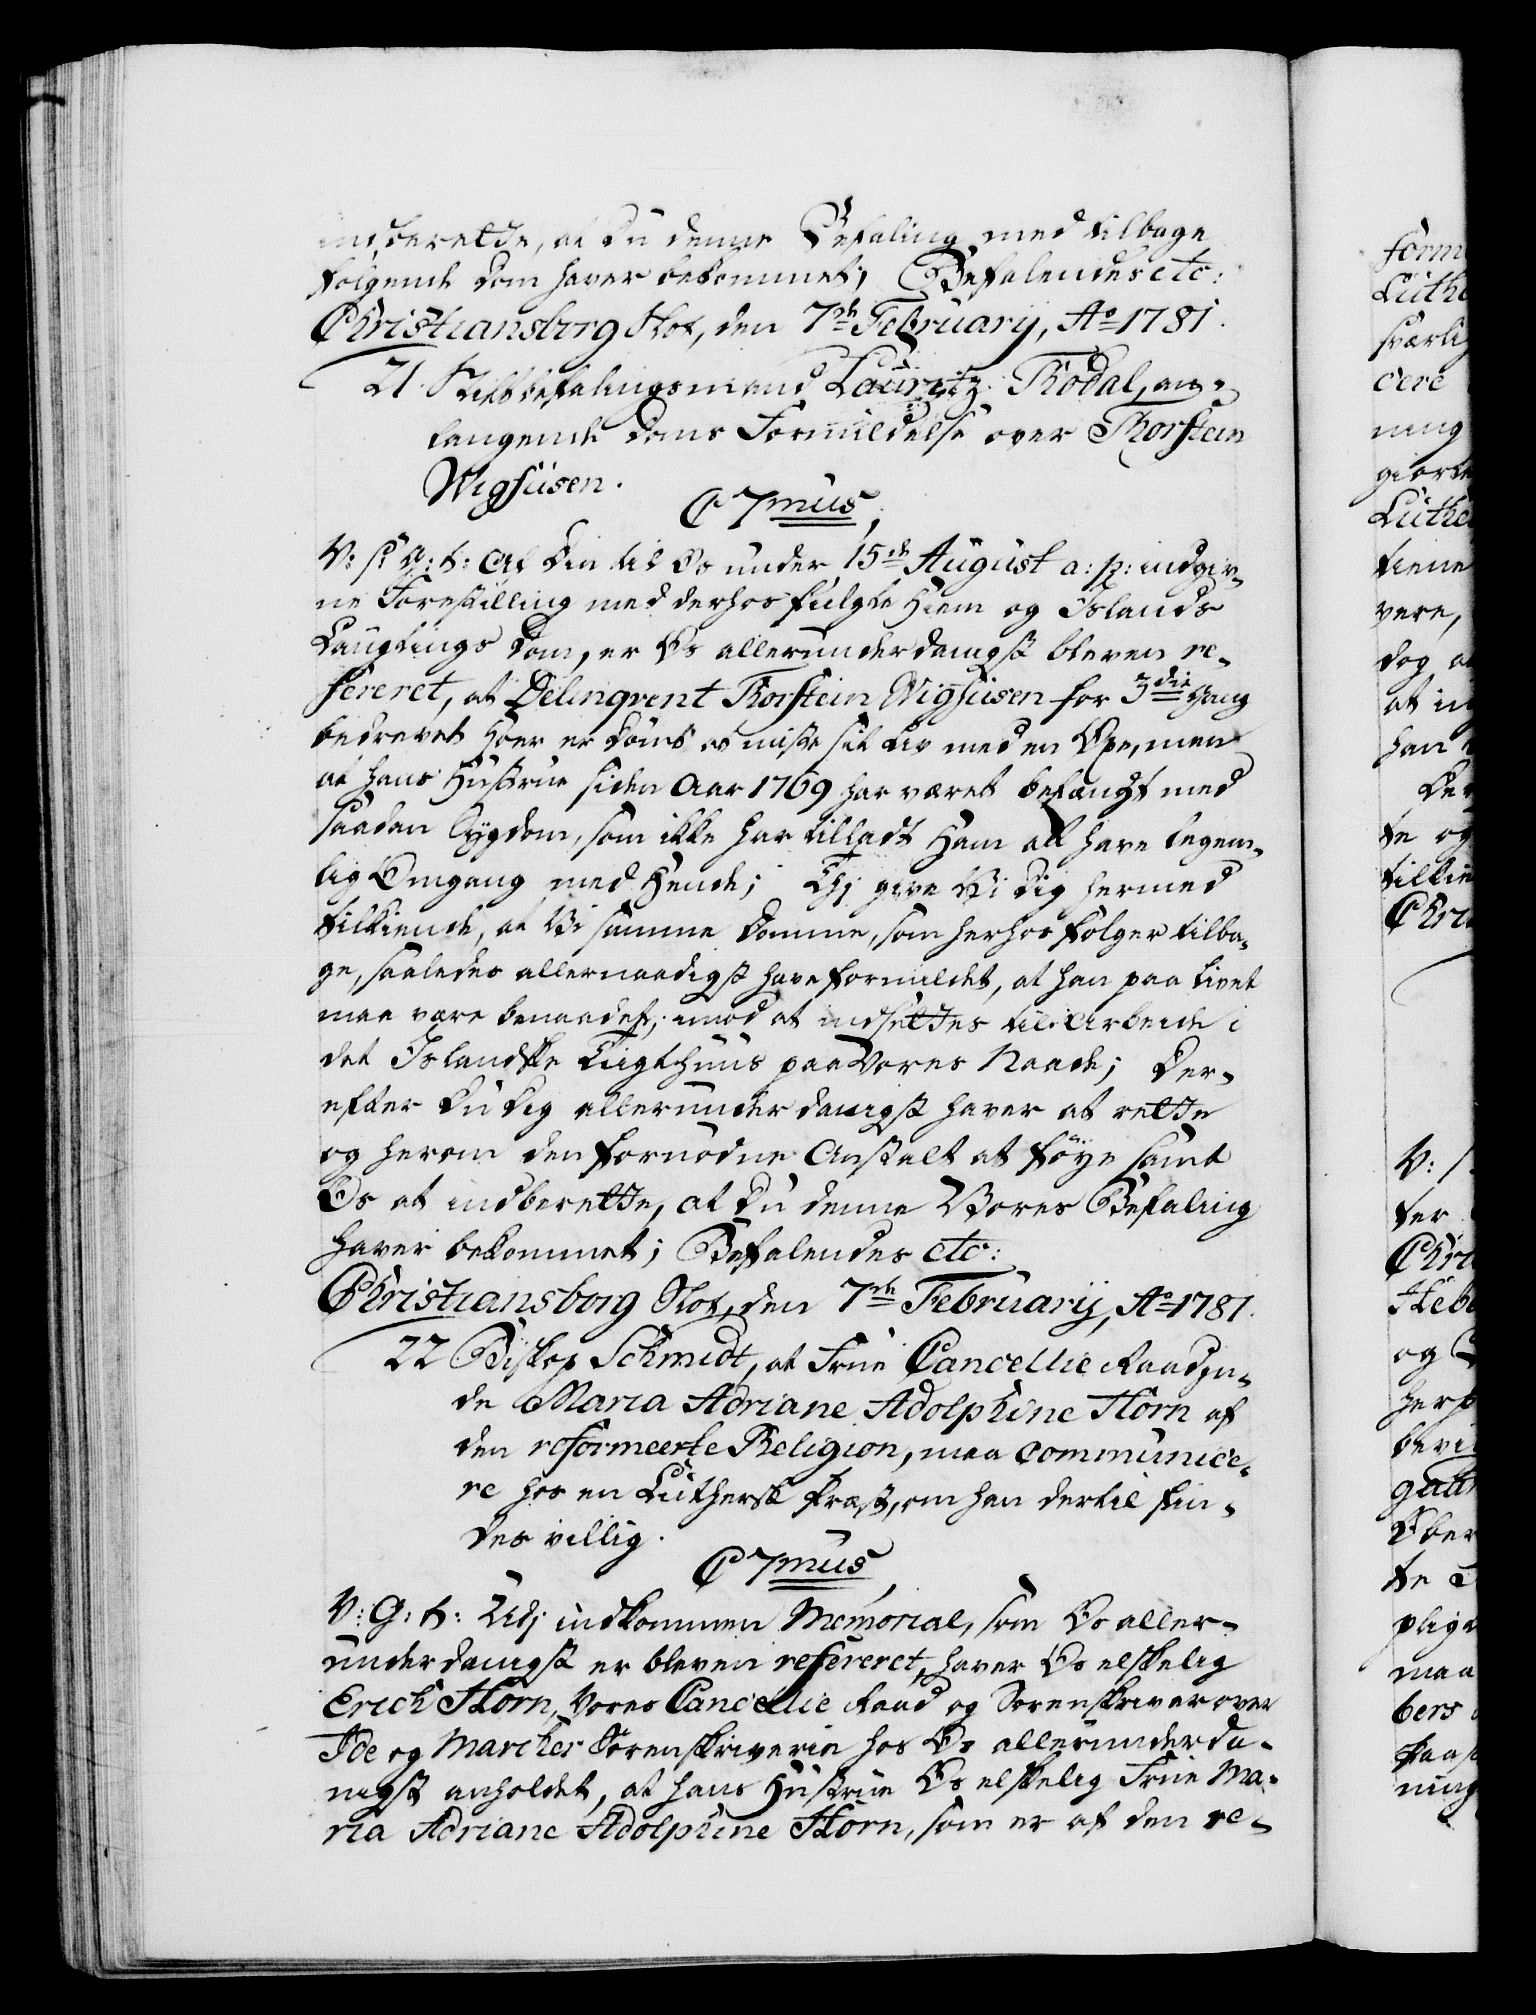 indberette, at du denne Befaling med tilbage
følgende Dom haver bekommet; Befalendes etc:
Christiansborg Slot, den 7de Februarij, Ao 1781.
21. Stiftbefalingsmand Lauritz Thodal, an-
langende Doms Formildelse over Thorstein
Wigfusen.
C 7mus,
V: s: G: t: Af Din til Os under 15de August a: p: indgiv-
ne Forestilling med derhos fulgte Hiem og Islands
Laugtings Dom, er Os allerunderdanigst bleven re-
fereret, at Delinqvent Thorstein Wigfusen for 3die gang
bedrevet Hoer er dømt at miste sit Liv med en Øxe, men
at hans Hustrue siden Aar 1769 har været befængt med
saadan Sygdom, som ikke har tilladt Ham at have legem-
lig Omgang med Hende; Thj give Vi Dig hermed
tilkiende, at Vi samme Domme, som herhos følger tilba-
ge, saaledes allernaadigst have formildet, at han paa Livet
maa være benaadet, imod at indsettes til Arbeide i
det Islandske Tugthuus paa Vores Naade; Der-
efter Du Dig allerunderdanigst haver at rette
og herom den fornødne Anstalt at føye samt
Os at indberette, at Du denne Vores Befaling
haver bekommet; Befalendes etc:
Christiansborg Slot, den 7de Februarij, Ao 1781.
22 Biskop Schmidt, at Frue Cancellie Raadin-
de Maria Adriane Adolphine Horn af
den reformeerte Religion, maa communice-
re hos en Luthersk Præst, om han dertil fin-
des villig.
C 7mus,
V: G: t: Udj indkommen Memorial, som Os aller-
underdanigst er bleven refereret, haver Os elskelig
Erich Horn, Vores Cancellie Raad og Sorenskriver over
Ide og Marcker Sorenskriverie hos Os allerunderda-
nigst anholdet, at hans Hustrue Os elskelig Frue Ma-
ria Adriane Adolphine Horn, som er af den re-